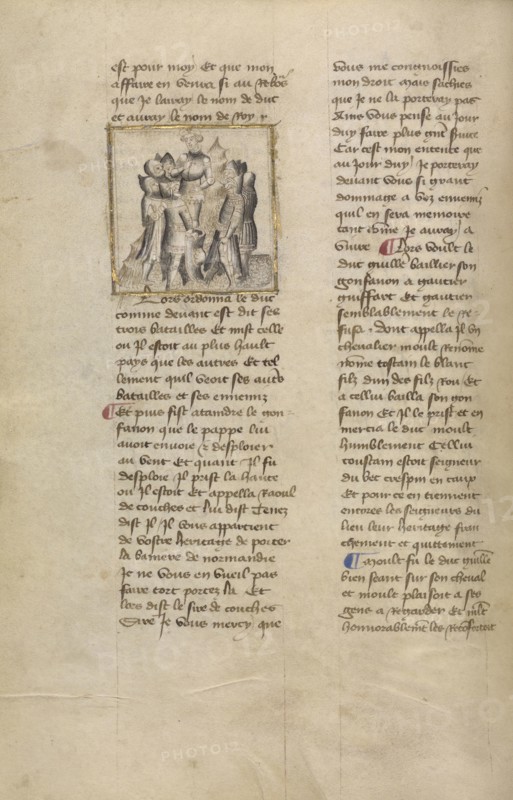 est pour moy Et que mon
affaire en venra si au Rebours
que Je lairay le nom de duc
et auray le nom de Roy
Lors ordonna le duc
comme deuant est dit ses
trois batailles Et mist celle
ou Il estoit au plus hault
pays que les autres Et tel
lement quil veoit ses autres
batailles et ses ennemis
Et puis fist atandre le gon
fanon que le pappe lui
auoit enuoie & desploier
au vent Et quant Il fu
desploie Il prist la hante
ou Il estoit Et appella Raoul
de conches et lui dist Tenez
dist Il Il vous appartient
de vostre heritage de porter
la baniere de normandie
Je ne vous en vueil pas
faire tort portez la Et
lors dist le sire de conches
Sire Je vous mercy que
vous me connoissies
mon droit Mais saches
que Je ne la porteray pas
Ains vous pense au Jour
duy faire plus grant
Car cest mon entente que
au Jour duy Je porteray
deuant vous si grant
dommage a voz ennemis
quil en sera memoire
tant comme Je auray a
viure Lors voult le
duc guillaume baillier son
gonfanon a gautier
guiffart Et gautier
semblablement le Re
fusa dont appella Il un
cheualier moult Renomme
nomme tostam le blant
filz dun des filz Rou Et
a cellui bailla son gon
fanon Et Il le prist et en
mercia le duc moult
humblement Cellui
toustam estoit seigneur
du bec crespin en caux
Et pour ce en tiennent
encores les seigneurs du
lieu leur heritage fran
chement et quittement
Moult fu le duc guillaume
bien seant sur son cheual
et moult plaisoit a ses
gens a Regarder Et
honnorablement les Reconfortoit
PHOTO12